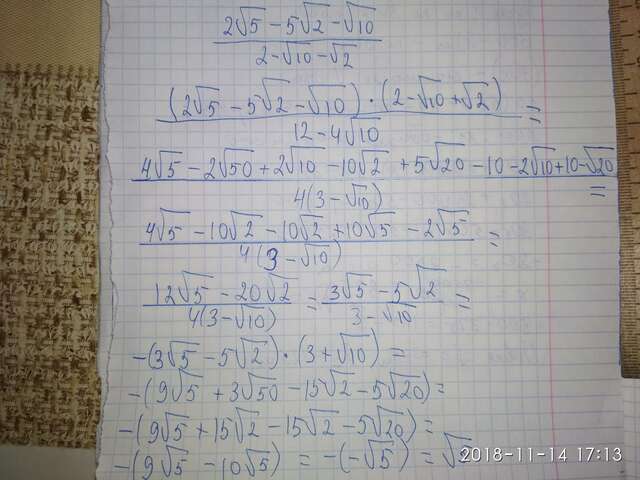 2√5 − 5√2 − √10
2 − √10 − √2
(2√5 − 5√2 − √10) · (2 − √10 + √2) =
12 − 4√10
4√5 − 2√50 + 2√10 − 10√2 + 5√20 − 10 − 2√10 + 10 − √20 =
4(3 − √10)
4√5 − 10√2 − 10√2 + 10√5 − 2√5 =
4(3 − √10)
12√5 − 20√2 = 3√5 − 5√2 =
4(3 − √10) 3 − √10
−(3√5 − 5√2) · (3 + √10) =
−(9√5 + 3√50 − 15√2 − 5√20) =
−(9√5 + 15√2 − 15√2 − 5√20) =
−(9√5 − 10√5) = −(−√5) = √5
2018-11-14 17:13